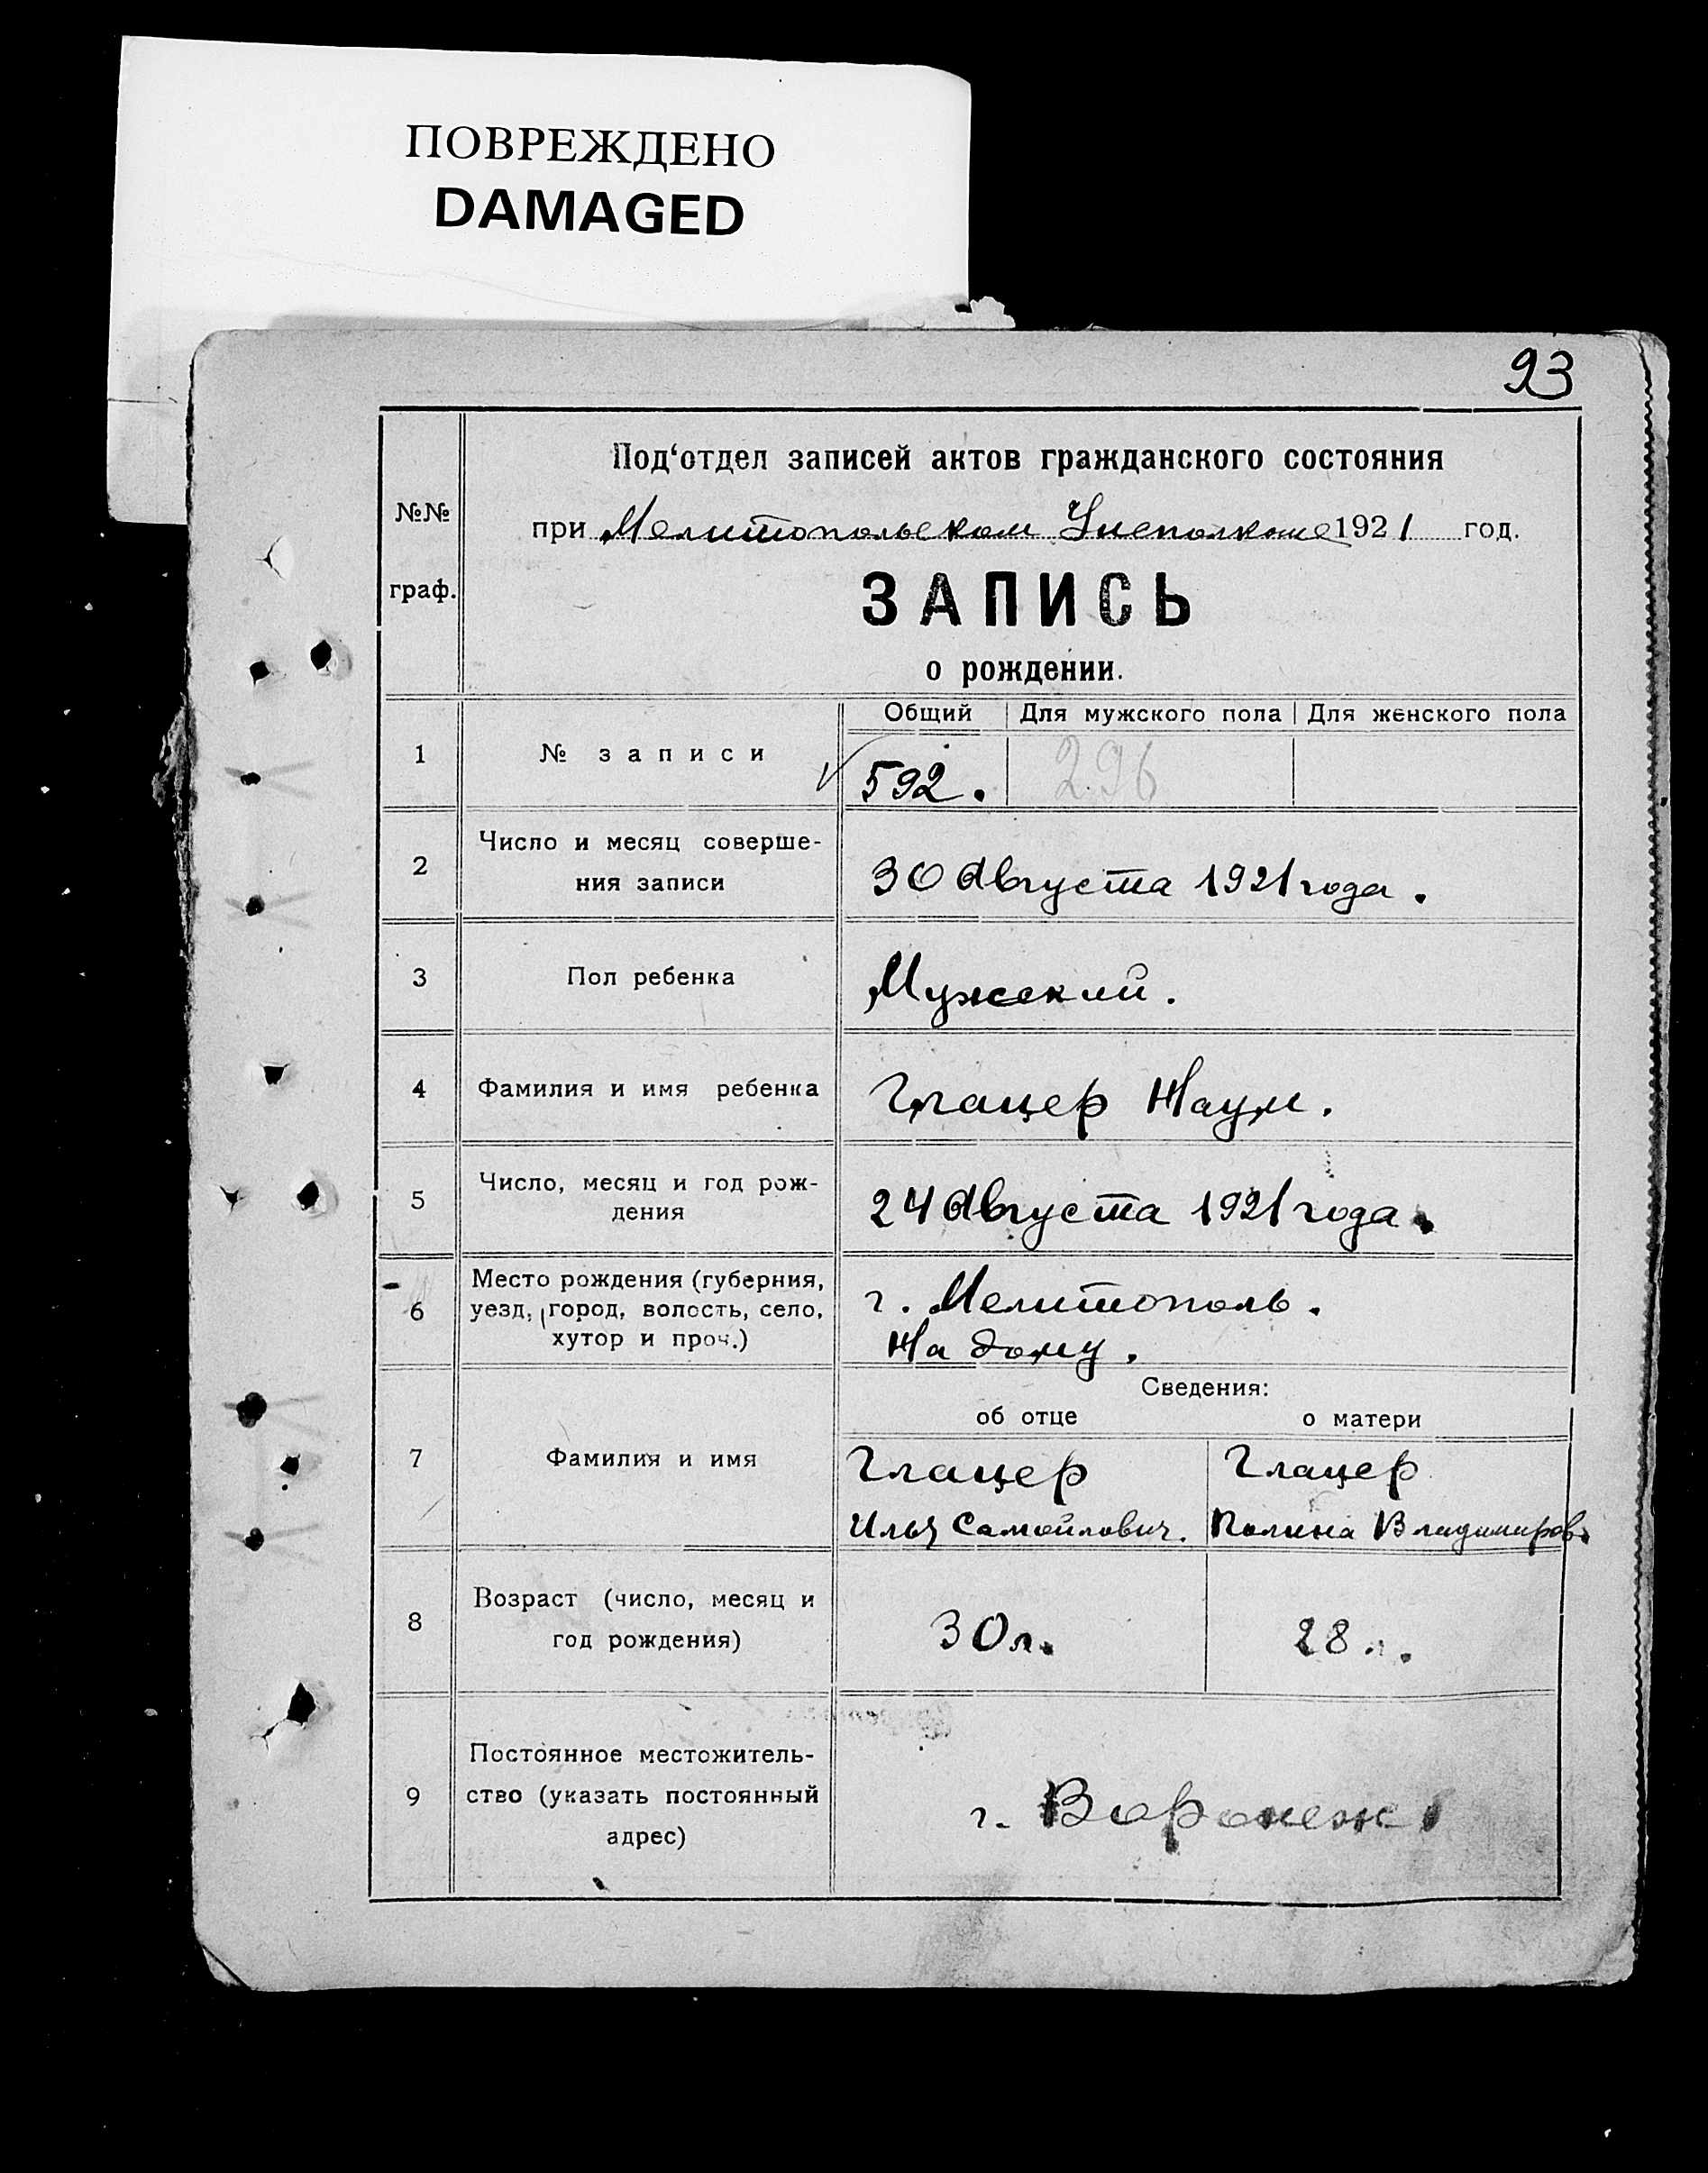 ПОВРЕЖДЕНО
DAMAGED
93
№№
граф.
Под‘отдел записей актов гражданского состояния
при Мелитопольском Уисполкоме 1921 год.
ЗАПИСЬ
о рождении.
Общий Для мужского пола Для женского пола
1 № записи 592. 296
2 Число и месяц соверше-
ния записи
30 Августа 1921 года.
3 Пол ребенка Мужский.
4 Фамилия и имя ребенка Глацер Наум.
5 Число, месяц и год рож-
дения
24 Августа 1921 года.
6 Место рождения (губерния,
уезд, город, волость, село,
хутор и проч.)
г. Мелитополь.
На дому.
Сведения:
об отце о матери
7 Фамилия и имя
Глацер Глацер
Илья Самойлович. Полина Владимиров.
8 Возраст (число, месяц и
год рождения)
30 л. 28 л.
9 Постоянное местожитель-
ство (указать постоянный
адрес)
г. Воронеж